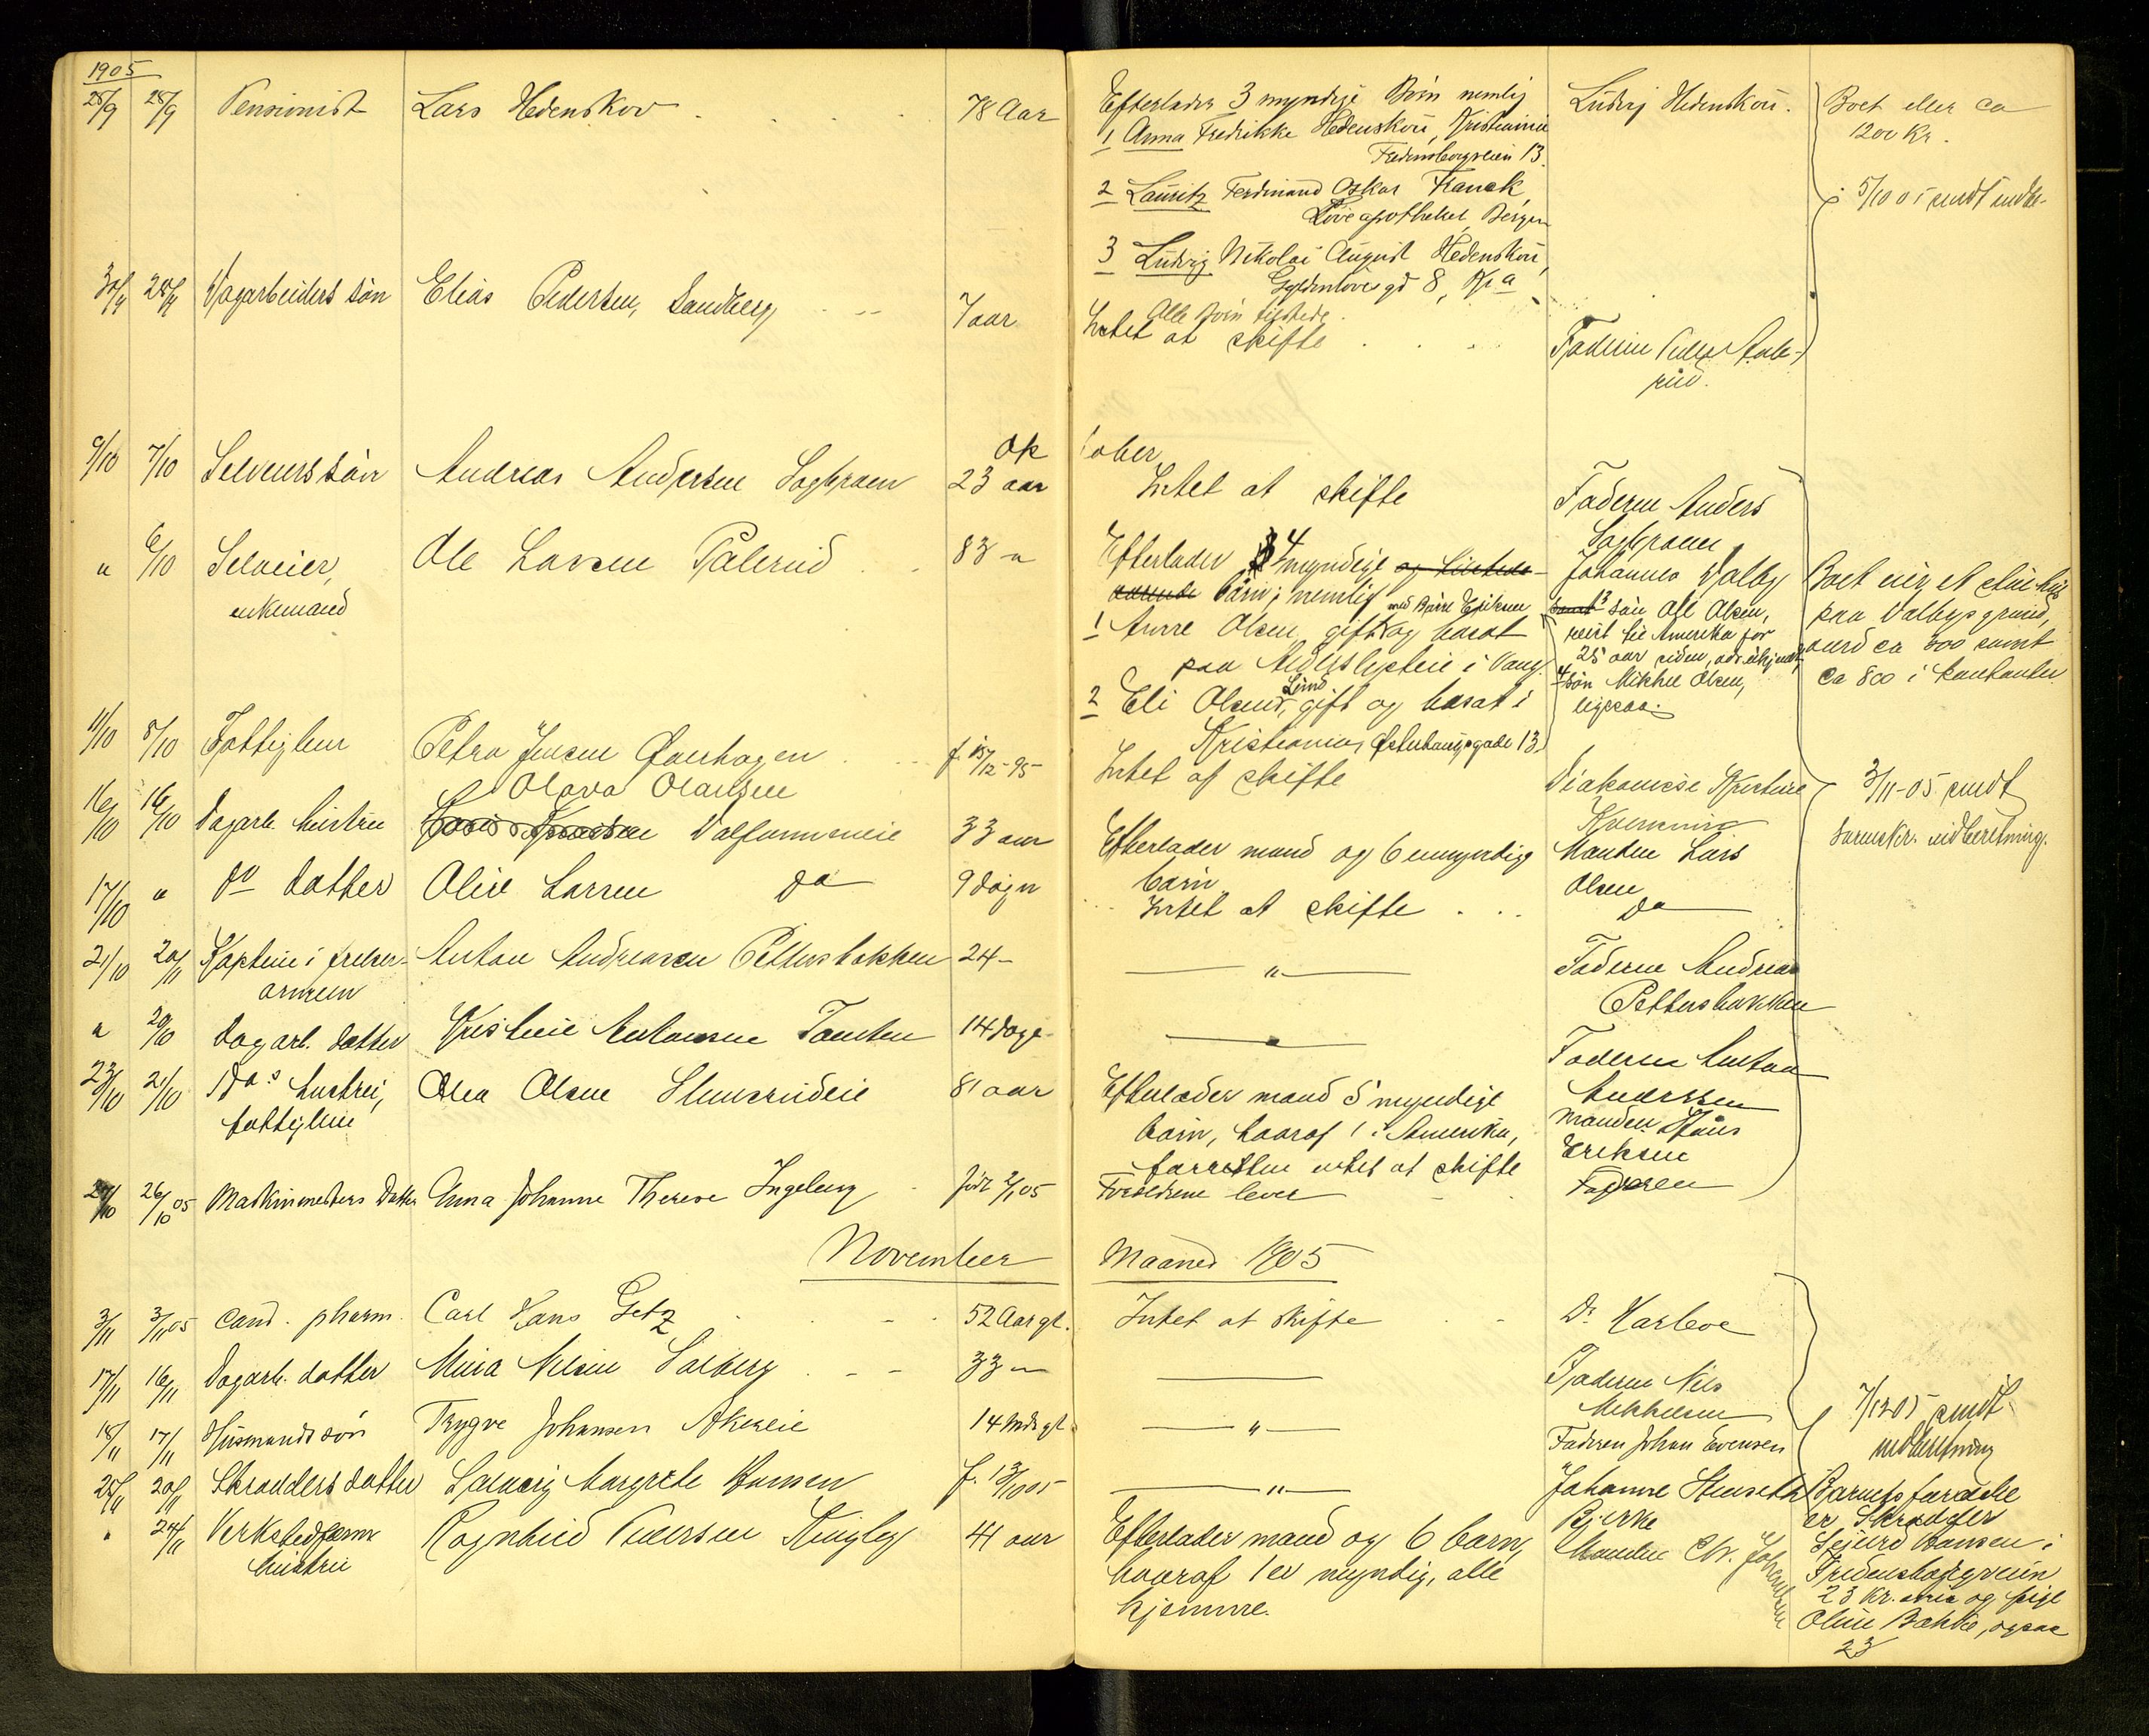 1905
28/9 28/9 Pensionist Lars Hedenskov 78 Aar Efterlader 3 myndige Børn nemlig Ludvig Hedenskou. Boet eller ca
1 Anna Fredrikke Hedenskou, Kristiania 1200 Kr.
Fredensborgveien 13.
2 Lauritz Ferdinand Oskar Franck, 5/10 05 sendt indb.
Løveapotheket, Bergen
3 Ludvig Nikolai August Hedenskou,
Gyldenløvesgd 8, Kr.a
Alle Børn tilstede.
30/9 28/9 Dagarbeiders søn Elias Pedersen, Sandberg 7 aar Intet at skifte Faderen Peder
rud.
Oktober
9/10 7/10 Selveiers søn Andreas Andersen Sagbraen 23 aar Intet at skifte Faderen Anders
Sagbraen
" 6/10 Selveier, Ole Larsen Pålerud 83 " Efterlader 4 myndige og Johannes Valby Boet eier et lite hus
enkemand børn; nemlig med Børre Eriksen 3 søn Ole Olsen, paa Valbys grund,
1 Anne Olsen, gift og bosat reist til Amerika for værd ca 800 samt
paa i Vang. 25 aar siden, adr. ukjendt, ca 800 i kontanter
2 Eli Olsen Lund, gift og bosat i 4 søn Mikkel Olsen,
Kristiania, Østerhausgade 13. ligesaa.
11/10 8/10 Fattiglem Petra Jensen Qvernhagen f. 15/12-95 Intet at skifte Diakonisse Kristine 3/11-05 sendt
16/10 16/10 Dagarb. hustru Olava Olausen Dalsummeneie 33 aar Efterlader mand og 6 umyndige Manden Lars indberetning.
børn Olsen
17/10 " do datter Olive Larsen do 9 døgn Intet at skifte do
21/10 20/11 Kaptein i frelser- Anton Andreasen Pettersbakken 24 - " Faderen Andreas
armeen Pettersbakken
" 20/10 Dagarb. datter Kristine Antonsen Tomten 14 dage " Faderen Anton
Anderssen
23/10 21/10 Do.s hustru, Olea Olsen 81 aar Efterlader mand 5 myndige Manden Hans
fattiglem børn, hvoraf 1 i Amerika, Eriksen
forresten intet at skifte
27/10 26/10 05 Maskinmesters Datter Anna Johanne Therese Ingeberg født 2/1 05 Forældrene lever Faderen
November Maaned 1905
3/11 3/11 05 Cand. pharm. Carl Hans Getz 52 Aar gl. Intet at skifte Dr Harboe
17/11 16/11 Dagarb. datter Mina Nelsin Solberg 33 " Faderen Nils
Mikkelsen 7/12 05 sendt
18/11 17/11 Husmands søn Trygve Johansen Akereie 14 Mdr gl. " Faderen Johan Evensen indberetning
25/11 20/11 Skrædders datter Solveig Margrete Hansen f. 13/10 05 " Johanne Stenseth Barnets forældre
Bjerke er Skrædder
" 24/11 Verkstedform. Ragnhild Pedersen Kingly 41 aar Efterlader mand og 6 børn, Manden Chr. Johansen Sejurd Hansen i
hustru hvoraf 1 er myndig, alle Fredensborgveien
hjemme. 23 Kr.ania og pige
Oline Bakke, ogsaa
23